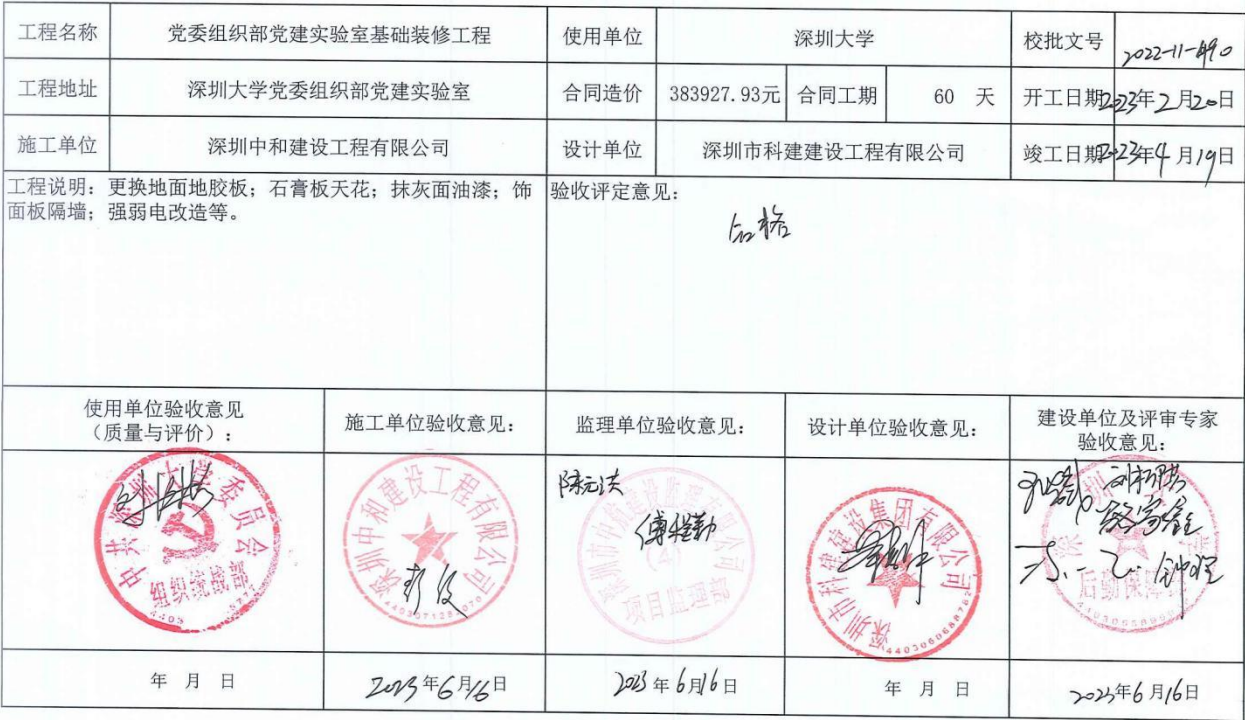 工程名称 党委组织部党建实验室基础装修工程 使用单位 深圳大学 校批文号
工程地址 深圳大学党委组织部党建实验室 合同造价 383927.93元 合同工期 60 天 开工日期 2023年2月20日
施工单位 深圳中和建设工程有限公司 设计单位 深圳市科建建设工程有限公司 竣工日期 2023年4月19日
工程说明：更换地面地胶板；石膏板天花；抹灰面油漆；饰
面板隔墙；强弱电改造等。
验收评定意见：
合格
使用单位验收意见
（质量与评价）：
施工单位验收意见：
监理单位验收意见：
设计单位验收意见：
建设单位及评审专家
验收意见：
中共深圳大学委员会
组织统战部
深圳中和建设工程有限公司
陈元洪
(4)
项目监理部
深圳市科建建设集团有限公司
后勤保障部
年 月 日
2023年6月16日
2023年6月16日
年 月 日
2023年6月16日